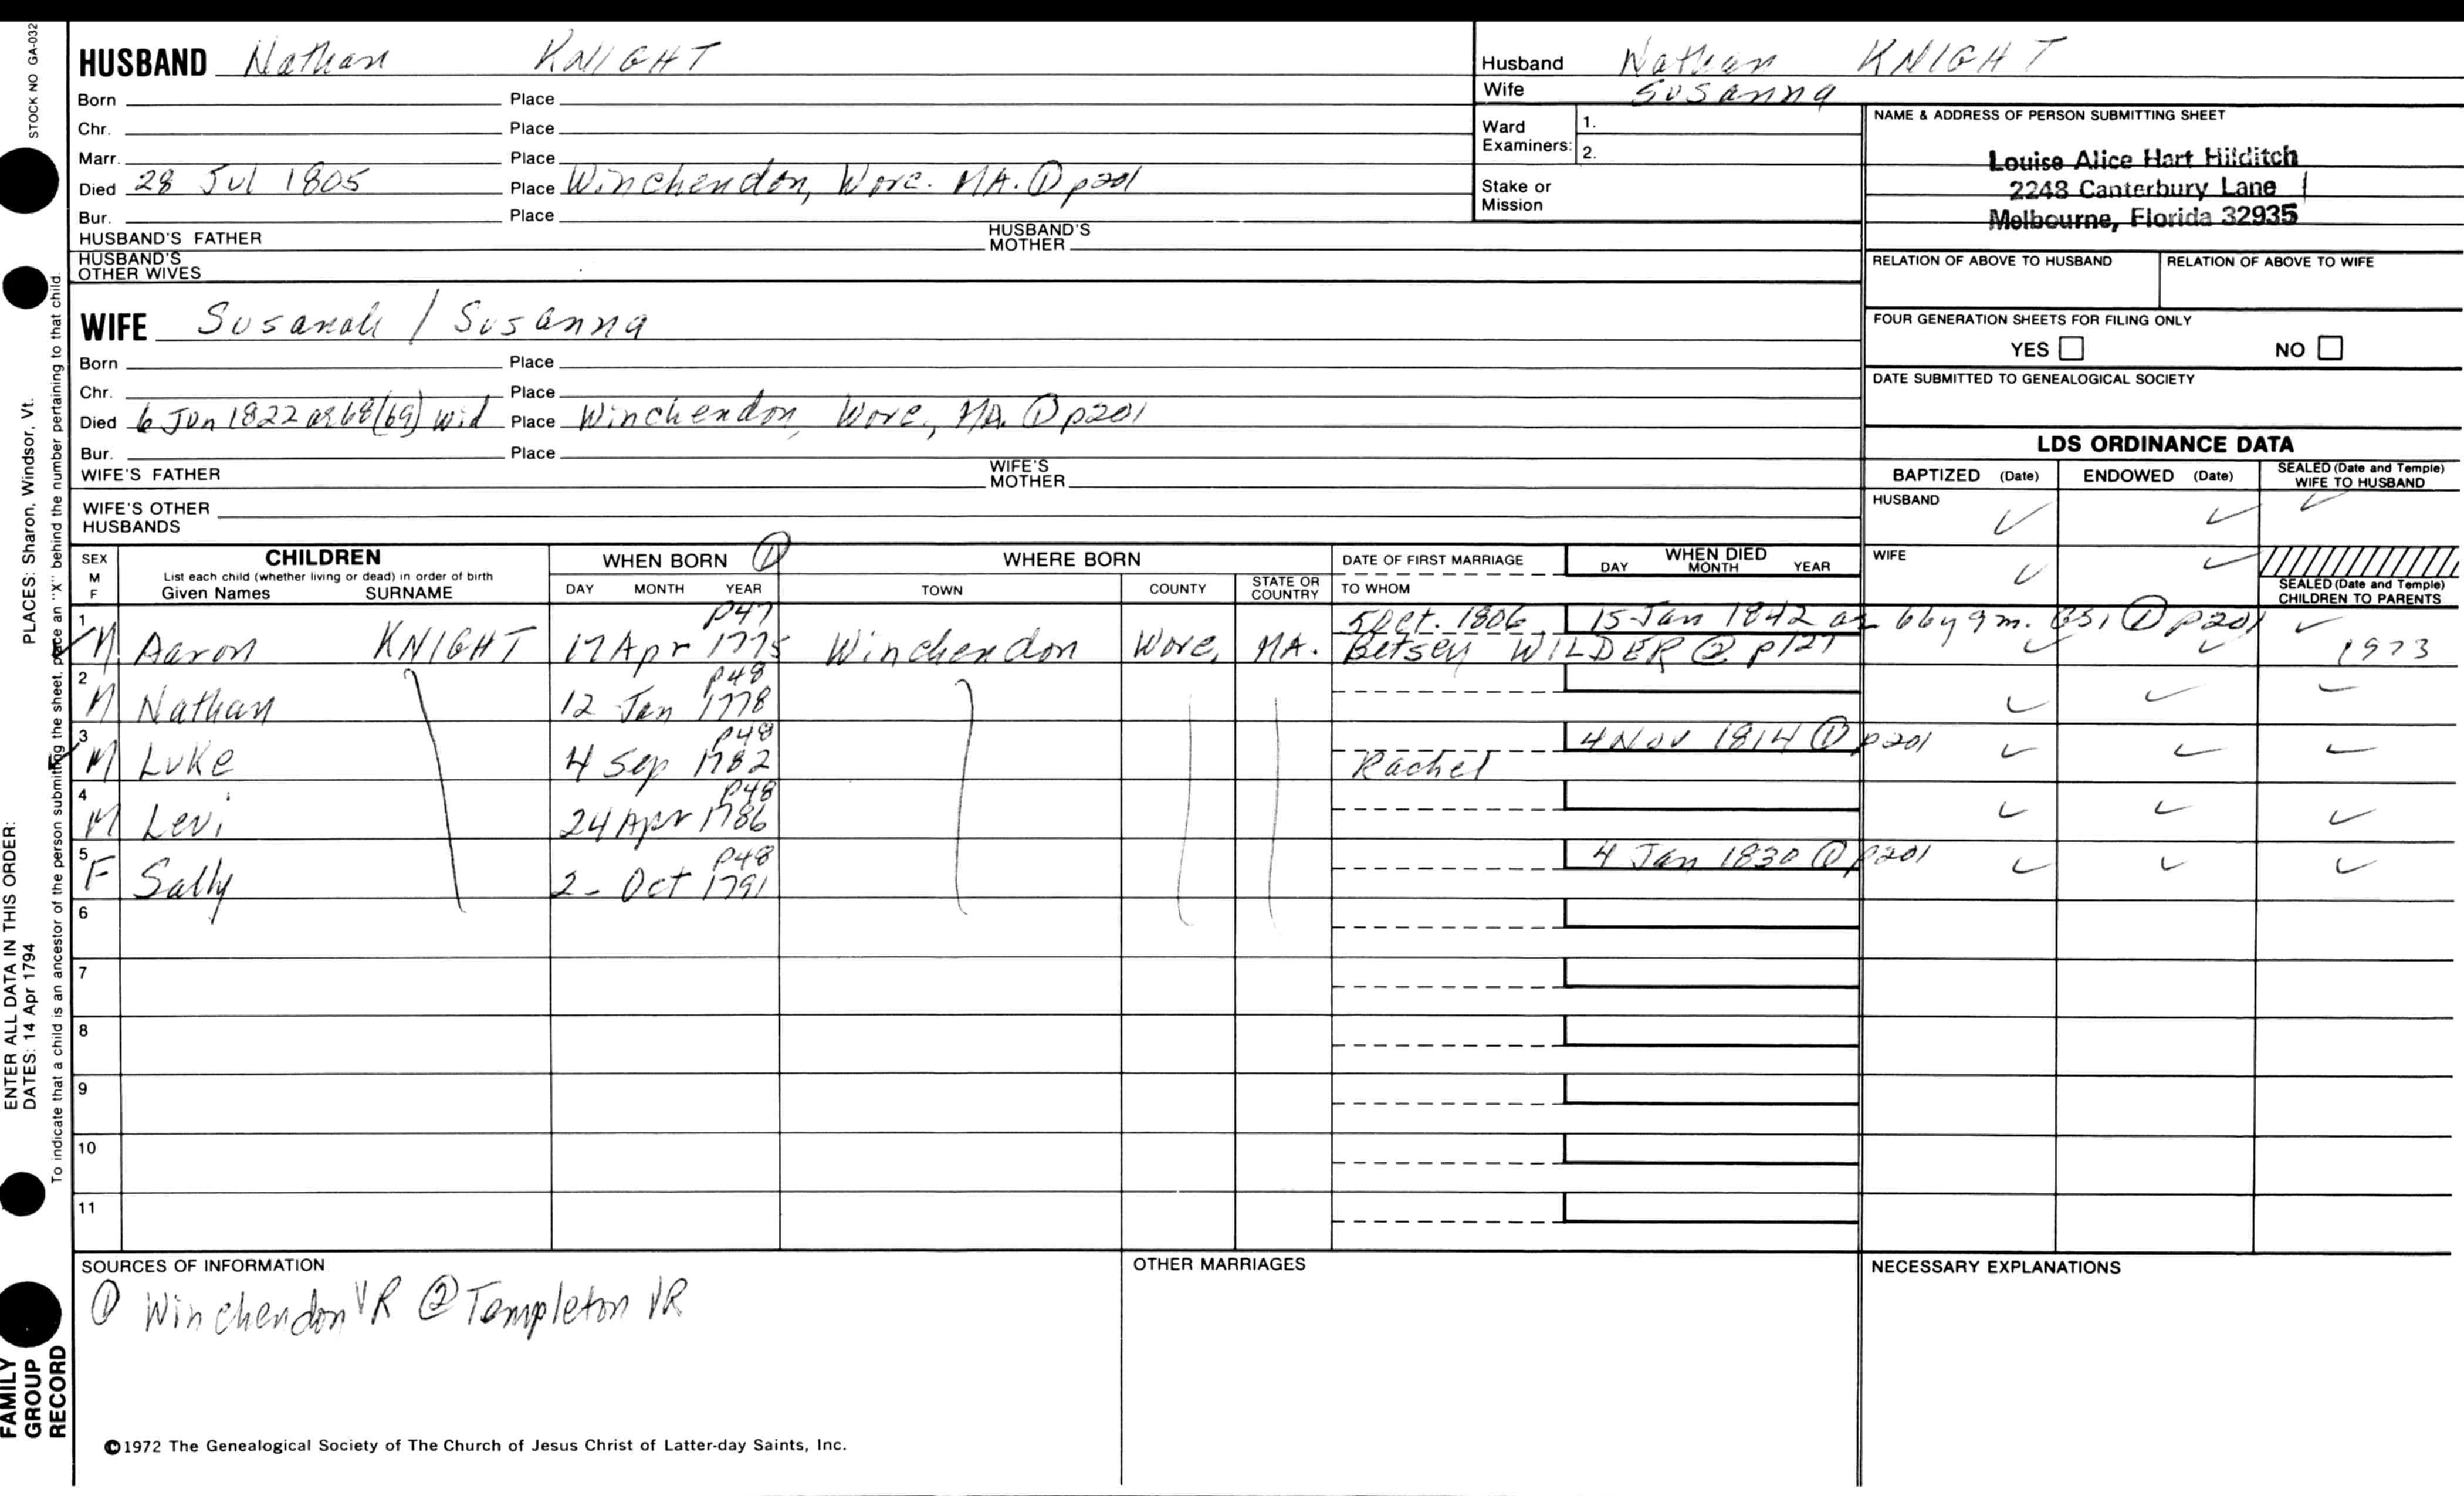 STOCK NO GA-032
HUSBAND Nathan KNIGHT
Born Place
Chr. Place
Marr. Place
Died 28 Jul 1805 Place Winchendon, Worc. MA. ① p201
Bur. Place
HUSBAND'S FATHER HUSBAND'S MOTHER
HUSBAND'S OTHER WIVES
WIFE Susanah / Susanna
Born Place
Chr. Place
Died 6 Jun 1822 ae 68(69) wid Place Winchendon, Worc, MA. ① p201
Bur. Place
WIFE'S FATHER WIFE'S MOTHER
WIFE'S OTHER HUSBANDS
Husband Nathan KNIGHT
Wife Susanna
Ward Examiners: 1.
2.
Stake or Mission
NAME & ADDRESS OF PERSON SUBMITTING SHEET
Louise Alice Hart Hilditch
2248 Canterbury Lane
Melbourne, Florida 32935
RELATION OF ABOVE TO HUSBAND RELATION OF ABOVE TO WIFE
FOUR GENERATION SHEETS FOR FILING ONLY
YES NO
DATE SUBMITTED TO GENEALOGICAL SOCIETY
LDS ORDINANCE DATA
BAPTIZED (Date) ENDOWED (Date) SEALED (Date and Temple) WIFE TO HUSBAND
HUSBAND ✓ ✓ ✓
WIFE ✓ ✓
SEALED (Date and Temple) CHILDREN TO PARENTS
SEX M F
CHILDREN
List each child (whether living or dead) in order of birth
Given Names SURNAME
WHEN BORN ①
DAY MONTH YEAR
WHERE BORN
TOWN COUNTY STATE OR COUNTRY
DATE OF FIRST MARRIAGE
TO WHOM
WHEN DIED
DAY MONTH YEAR
1 p47 5 Oct. 1806 15 Jan 1842 ae 66y 9m. ① p201 ✓
M Aaron KNIGHT 17 Apr 1775 Winchendon Worc, MA. Betsey WILDER ② p127 ✓ ✓ 1973
2 p48
M Nathan 12 Jan 1778 ✓ ✓ ✓
3 p48 4 Nov 1814 ① p201
M Luke 4 Sep 1782 Rachel ✓ ✓ ✓
4 p48
M Levi 24 Apr 1786 ✓ ✓ ✓
5 p48 4 Jan 1830 ① p201
F Sally 2- Oct 1791 ✓ ✓ ✓
6
7
8
9
10
11
SOURCES OF INFORMATION
① Winchendon VR ② Templeton VR
OTHER MARRIAGES
NECESSARY EXPLANATIONS
©1972 The Genealogical Society of The Church of Jesus Christ of Latter-day Saints, Inc.
ENTER ALL DATA IN THIS ORDER:
DATES: 14 Apr 1794 PLACES: Sharon, Windsor, Vt.
To indicate that a child is an ancestor of the person submitting the sheet, place an "X" behind the number pertaining to that child.
FAMILY
GROUP
RECORD